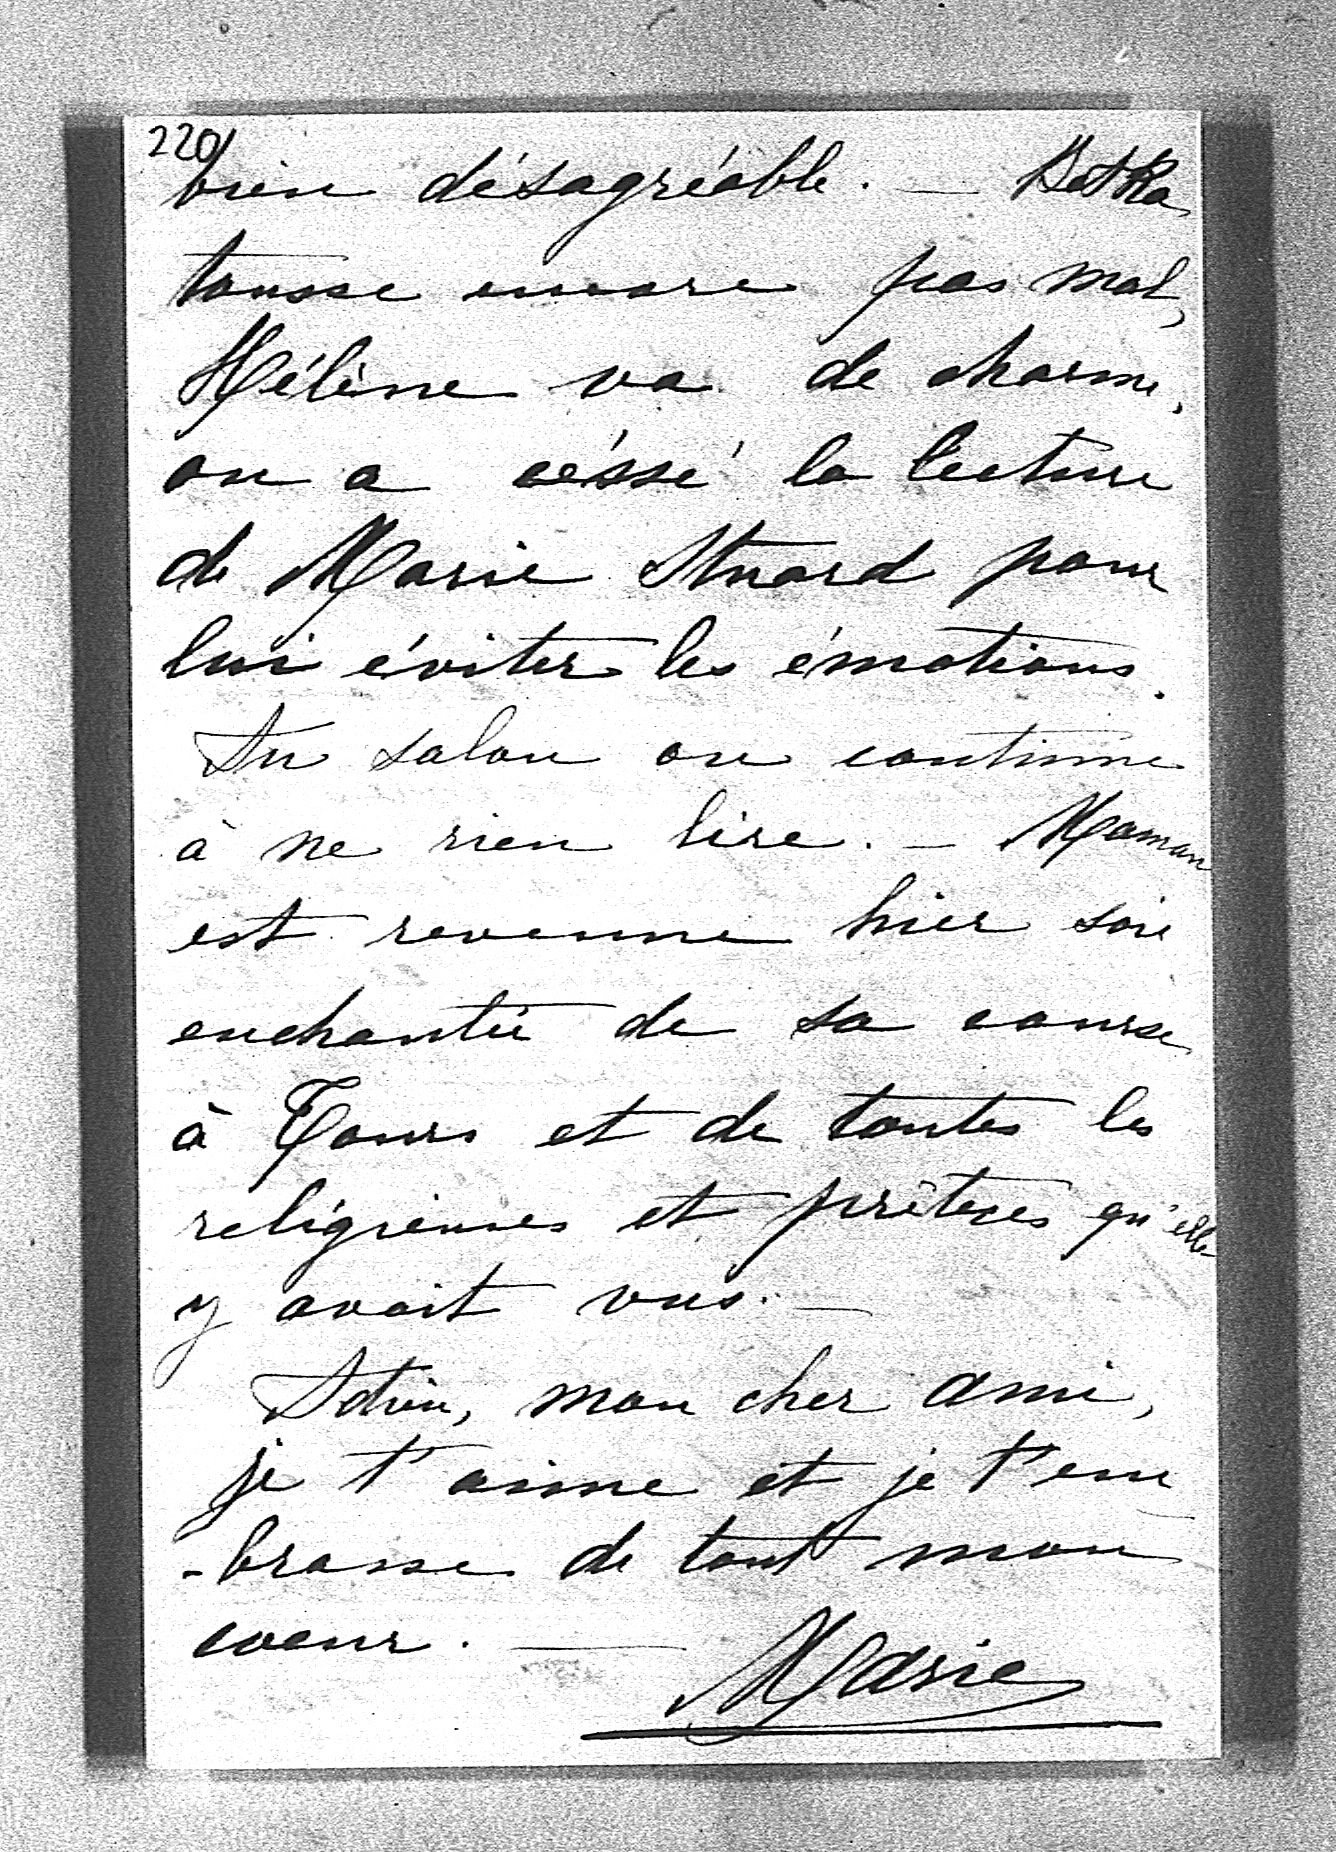 220
bien désagréable. — Betka
tousse encore pas mal,
Hélène va de charme,
on a céssé la lecture
de Marie Stuard pour
lui éviter les émotions.
Au salon on continue
à ne rien lire. — Maman
est revenue hier soir
enchantée de sa course
à Tours et de toutes les
religieuses et prêtres qu'elle
y avait vus. —
Adieu, mon cher ami,
je t'aime et je t'em
-brasse de tout mon
coeur. —
Marie